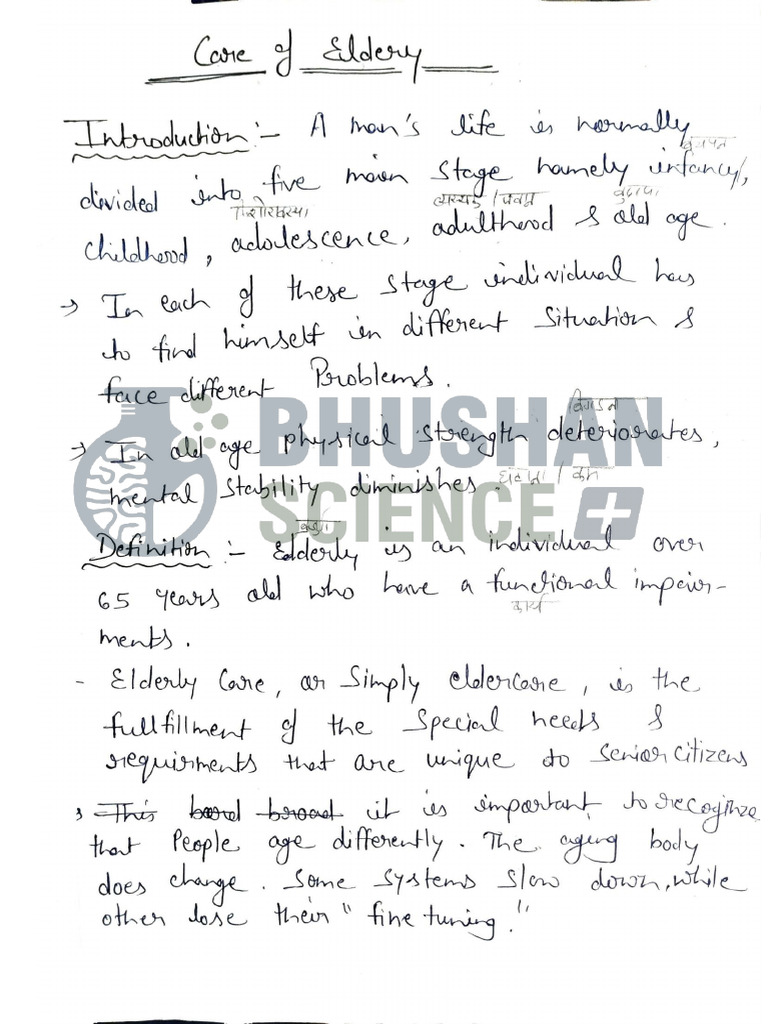 Care of Eldery
Introduction :- A man's life is normally
बचपन
divided into five main stage namely infancy,
किशोरावस्था वयस्कता / बुढ़ापा
childhood, adolescence, adulthood & old age.
→ In each of these stage individual has
to find himself in different situation &
face different Problems.
BHUSHAN
बिगड़ना
→ In old age physical strength deteriorates,
mental stability diminishes. घटना / कम
SCIENCE +
Definition :- Elderly is an individual over
65 years old who have a functional impair-
कार्य
ments.
- Elderly Care, or Simply eldercare, is the
fullfillment of the special needs &
requirments that are unique to senior citizens
This board broad it is important to recoginze
that People age differently. The aging body
does change. Some systems slow down, while
other lose their "fine tuning."